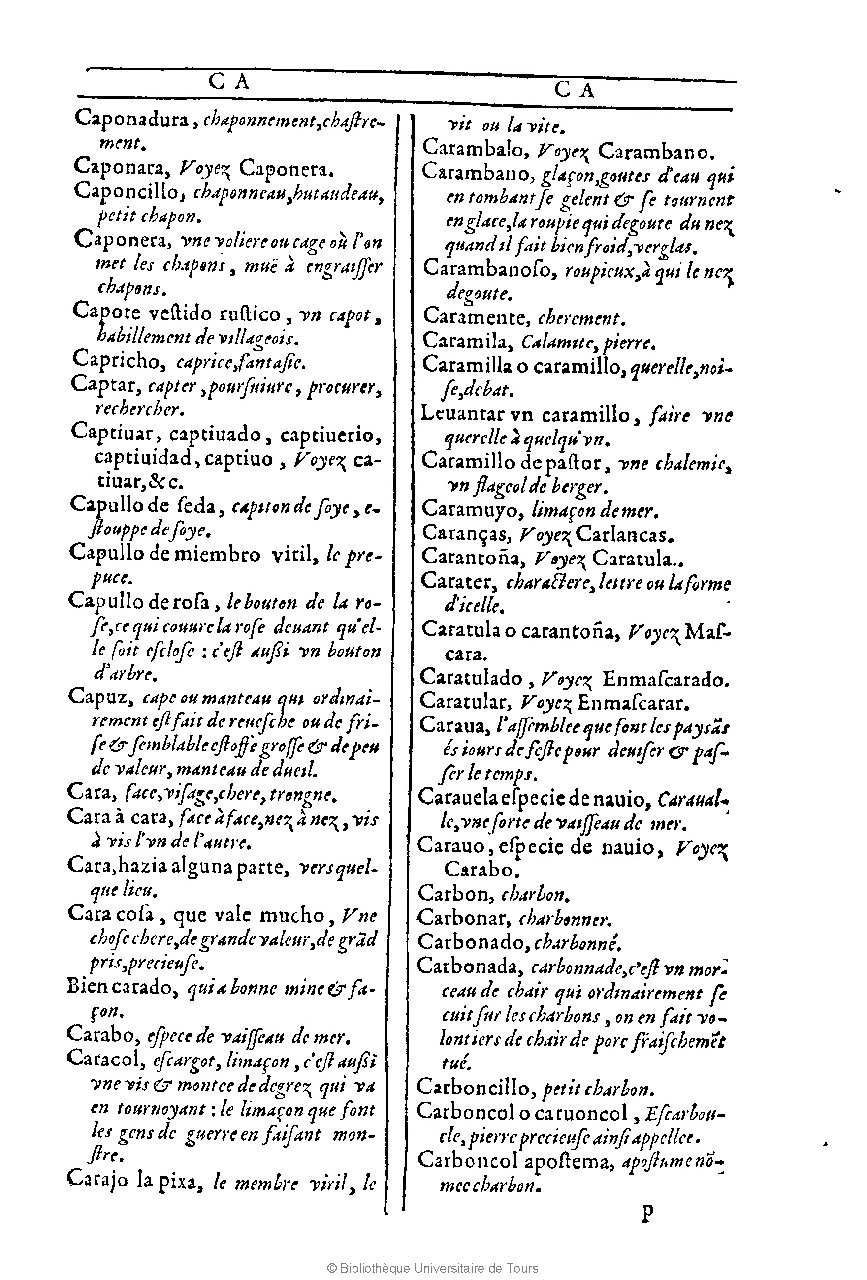 C A
Caponadura, chaponnement, chaſtre-
ment.
Caponara, Voyez Caponera.
Caponcillo, chaponneau, hutaudeau,
petit chapon.
Caponera, vne voliere ou cage où l'on
met les chapons, muë à engraiſſer
chapons.
Capote veſtido ruſtico, vn capot,
habillement de villageois.
Capricho, caprice, fantaſie.
Captar, capter, pourſuiure, procurer,
rechercher.
Captiuar, captiuado, captiuerio,
captiuidad, captiuo, Voyez ca-
tiuar, &c.
Capullo de ſeda, capiton de ſoye, e-
ſtouppe de ſoye.
Capullo de miembro viril, le pre-
puce.
Capullo de roſa, le bouton de la ro-
ſe, ce qui couure la roſe deuant qu'el-
le ſoit eſcloſe : c'eſt auſsi vn bouton
d'arbre.
Capuz, cape ou manteau qui ordinai-
rement eſt fait de reueſche ou de fri-
ſe & ſemblable eſtoffe groſſe & de peu
de valeur, manteau de dueil.
Cara, face, viſage, chere, trongne.
Cara à cara, face à face, nez à nez, vis
à vis l'vn de l'autre.
Cara, hazia alguna parte, vers quel-
que lieu.
Cara coſa, que vale mucho, Vne
choſe chere, de grande valeur, de grãd
pris, precieuſe.
Bien carado, qui a bonne mine & fa-
çon.
Carabo, eſpece de vaiſſeau de mer.
Caracol, eſcargot, limaçon, c'eſt auſsi
vne vis & montee de degrez qui va
en tournoyant : le limaçon que font
les gens de guerre en faiſant mon-
ſtre.
Carajo la pixa, le membre viril, le
C A
vit ou la vite.
Carambalo, Voyez Carambano.
Carambano, glaçon, goutes d'eau qui
en tombant ſe gelent & ſe tournent
en glace, la roupie qui degoute du nez
quand il fait bien froid, verglas.
Carambanoſo, roupieux, à qui le nez
degoute.
Caramente, cherement.
Caramila, Calamite, pierre.
Caramilla o caramillo, querelle, noi-
ſe, debat.
Leuantar vn caramillo, faire vne
querelle à quelqu'vn.
Caramillo de paſtor, vne chalemie,
vn flageol de berger.
Caramuyo, limaçon de mer.
Caranças, Voyez Carlancas.
Carantoña, Voyez Caratula..
Carater, charactere, lettre ou la forme
d'icelle.
Caratula o carantoña, Voyez Maſ-
cara.
Caratulado, Voyez Enmaſcarado.
Caratular, Voyez Enmaſcarar.
Caraua, l'aſſemblee que font les payſãs
és iours de feſte pour deuiſer & paſ-
ſer le temps.
Carauela eſpecie de nauio, Caraual-
le, vne ſorte de vaiſſeau de mer.
Carauo, eſpecie de nauio, Voyez
Carabo.
Carbon, charbon.
Carbonar, charbonner.
Carbonado, charbonné.
Carbonada, carbonnade, c'eſt vn mor-
ceau de chair qui ordinairement ſe
cuit ſur les charbons, on en fait vo-
lontiers de chair de porc fraiſchemẽt
tué.
Carboncillo, petit charbon.
Carboncol o caruoncol, Eſcarbou-
cle, pierre precieuſe ainſi appellee.
Carboncol apoſtema, apoſtume nõ-
mee charbon.
P
© Bibliothèque Universitaire de Tours